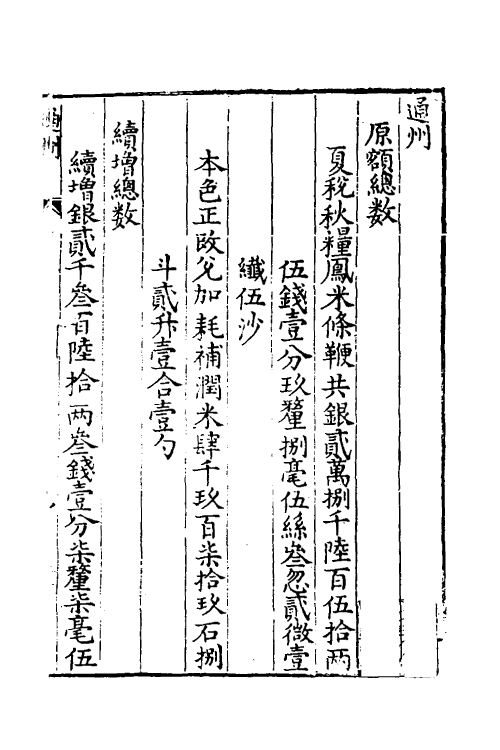 通州
原額總数
夏稅秋糧鳳米條鞭共銀貳萬捌千陸百伍拾兩
伍錢壹分玖釐捌毫伍絲叁忽貳微壹
纖伍沙
本色正改兌加耗補潤米肆千玖百柒拾玖石捌
斗貳升壹合壹勺
續增總数
續增銀貳千叁百陸拾兩叁錢壹分柒釐柒毫伍
通州